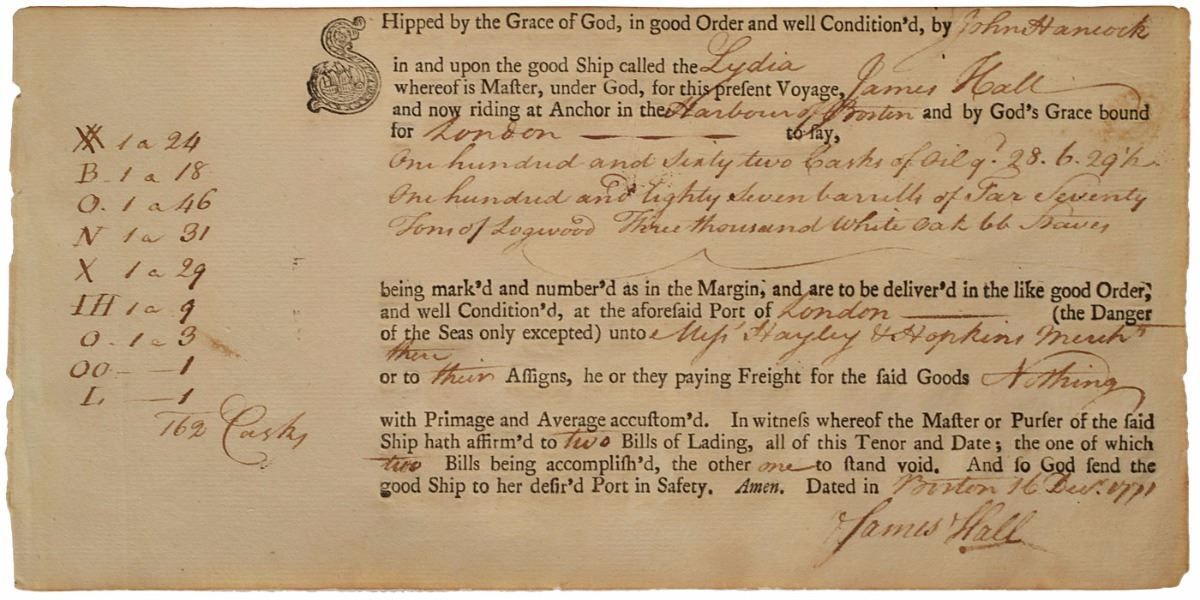 SHipped by the Grace of God, in good Order and well Condition'd, by John Hancock
in and upon the good Ship called the Lydia
whereof is Maſter, under God, for this preſent Voyage, James Hall
and now riding at Anchor in the Harbour of Boston and by God's Grace bound
for London to ſay,
One hundred and Sixty two Casks of Oil qt. 28. 6. 29
One hundred and Eighty Seven barrells of Tar Seventy
Tons of Logwood Three thousand White Oak bb Staves
X 1 a 24
B - 1 a 18
O. 1 a 46
N 1 a 31
X 1 a 29
IH 1 a 9
O - 1 a 3
OO — — 1
L — 1
162 Casks
being mark'd and number'd as in the Margin; and are to be deliver'd in the like good Order,
and well Condition'd, at the aforeſaid Port of London (the Danger
of the Seas only excepted) unto Meſsrs Hayley & Hopkins Mercht's
there
or to their Aſſigns, he or they paying Freight for the ſaid Goods Nothing
with Primage and Average accuſtom'd. In witneſs whereof the Maſter or Purſer of the ſaid
Ship hath affirm'd to two Bills of Lading, all of this Tenor and Date; the one of which
two Bills being accompliſh'd, the other one to ſtand void. And ſo God ſend the
good Ship to her deſir'd Port in Safety. Amen. Dated in Boston 16 Decr. 1771
James Hall